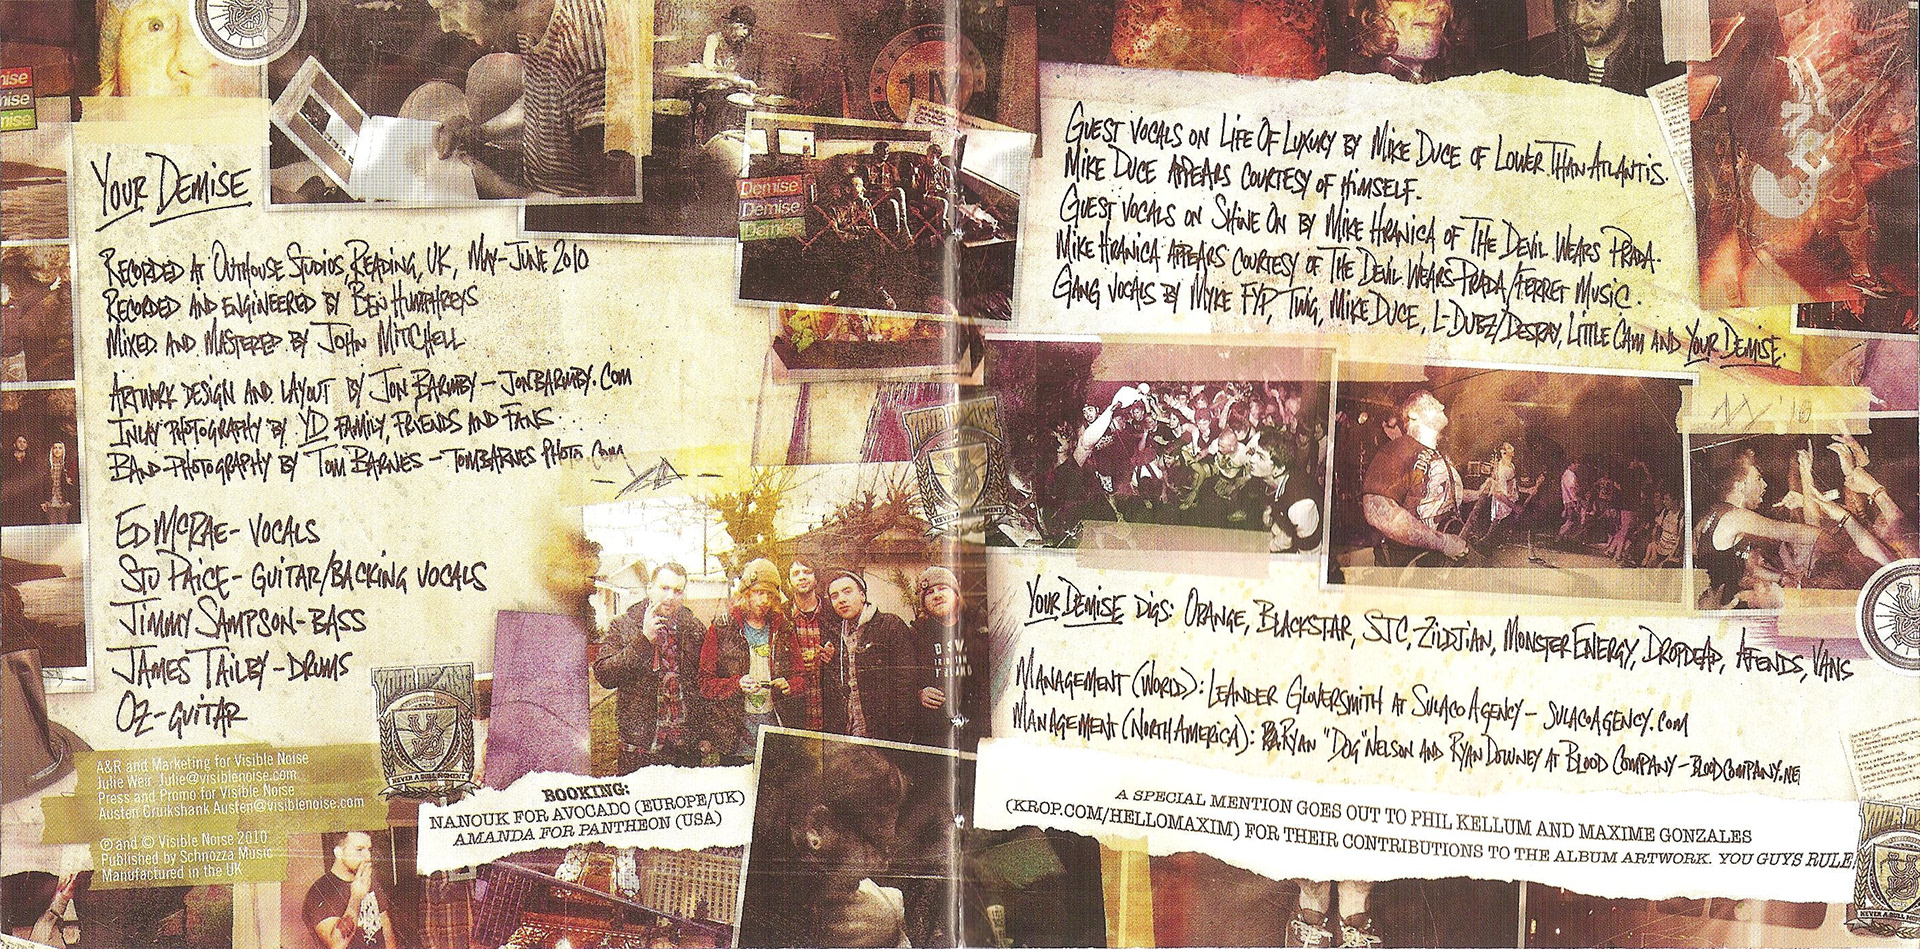 YOUR DEMISE
RECORDED AT OUTHOUSE STUDIOS, READING, UK, MAY-JUNE 2010
RECORDED AND ENGINEERED BY BEN HUMPHREYS
MIXED AND MASTERED BY JOHN MITCHELL
ARTWORK DESIGN AND LAYOUT BY JON BARMBY - JONBARMBY.COM
INLAY PHOTOGRAPHY BY YD FAMILY, FRIENDS AND FANS
BAND-PHOTOGRAPHY BY TOM BARNES - TOMBARNES PHOTO.COM
ED MCRAE - VOCALS
STU PAICE - GUITAR/BACKING VOCALS
JIMMY SAMPSON - BASS
JAMES TAILBY - DRUMS
OZ - GUITAR
A&R and Marketing for Visible Noise
Julie Weir Julie@visiblenoise.com
Press and Promo for Visible Noise
Austen Cruikshank Austen@visiblenoise.com
℗ and © Visible Noise 2010
Published by Schnozza Music
Manufactured in the UK
NEVER A DULL MOMENT
BOOKING:
NANOUK FOR AVOCADO (EUROPE/UK)
AMANDA FOR PANTHEON (USA)
Demise
Demise
Demise
NEVER A DULL MOMENT
GUEST VOCALS ON LIFE OF LUXURY BY MIKE DUCE OF LOWER THAN ATLANTIS.
MIKE DUCE APPEARS COURTESY OF HIMSELF.
GUEST VOCALS ON SHINE ON BY MIKE HRANICA OF THE DEVIL WEARS PRADA.
MIKE HRANICA APPEARS COURTESY OF THE DEVIL WEARS PRADA/FERRET MUSIC.
GANG VOCALS BY MYKE FYP, TWIG, MIKE DUCE, L-DUBZ/DESRAY, LITTLE CAM AND YOUR DEMISE.
YOUR DEMISE DIGS: ORANGE, BLACKSTAR, STC, ZILDJIAN, MONSTER ENERGY, DROPDEAD, AFENDS, VANS
MANAGEMENT (WORLD): LEANDER GLOVERSMITH AT SULACO AGENCY - SULACOAGENCY.COM
MANAGEMENT (NORTH AMERICA): RYAN "DOG" NELSON AND RYAN DOWNEY AT BLOOD COMPANY - BLOODCOMPANY.NE
A SPECIAL MENTION GOES OUT TO PHIL KELLUM AND MAXIME GONZALES
(KROP.COM/HELLOMAXIM) FOR THEIR CONTRIBUTIONS TO THE ALBUM ARTWORK. YOU GUYS RULE
NEVER A DULL MOMENT